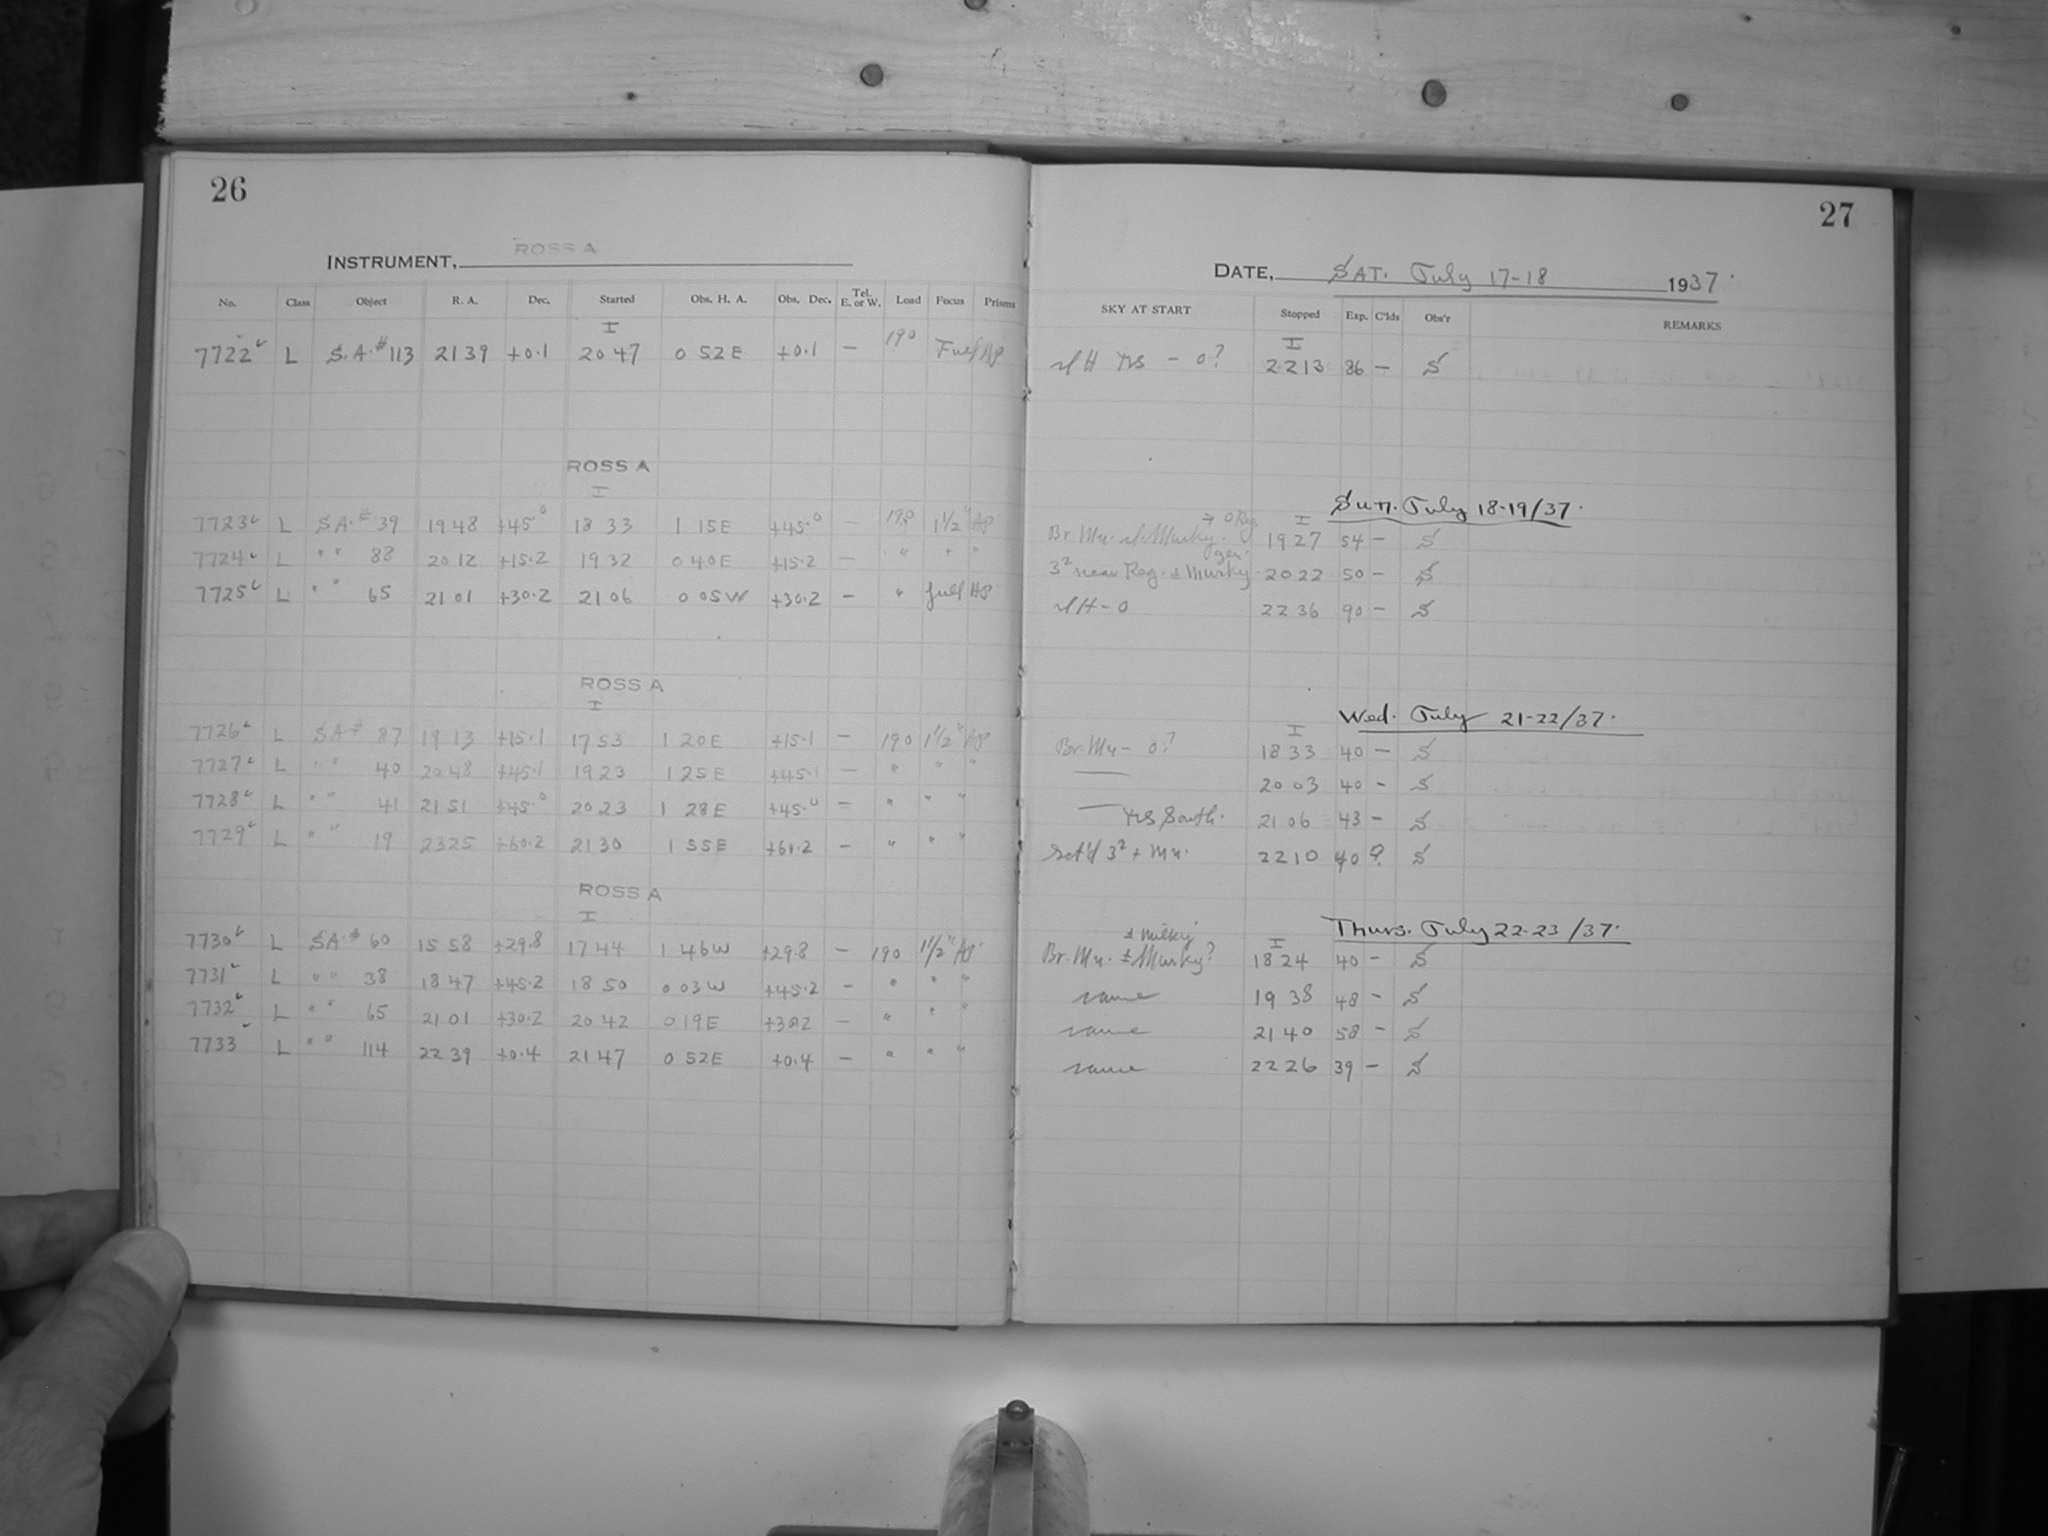 26
INSTRUMENT, ROSS A
No. Class Object R. A. Dec. Started Obs. H. A. Obs. Dec. Tel. E. or W. Load Focus Prisms
I
7722 L S.A.# 113 21 39 +0.1 20 47 0 52 E +0.1 – 190 Full Ap
ROSS A
I
7723 L S.A.# 39 19 48 +45.0 18 33 1 15 E +45.0 – 190 1 1/2" Ap
7724 L " " 88 20 12 +15.2 19 32 0 40 E +15.2 – " " "
7725 L " " 65 21 01 +30.2 21 06 0 05 W +30.2 – " full Ap
ROSS A
I
7726 L SA# 87 19 13 +15.1 17 53 1 20 E +15.1 – 190 1 1/2" Ap
7727 L " " 40 20 48 +45.1 19 23 1 25 E +45.1 – " " "
7728 L " " 41 21 51 +45.0 20 23 1 28 E +45.0 – " " "
7729 L " " 19 23 25 +60.2 21 30 1 55 E +60.2 – " " "
ROSS A
I
7730 L SA# 60 15 58 +29.8 17 44 1 46 W +29.8 – 190 1 1/2" Ap.
7731 L " " 38 18 47 +45.2 18 50 0 03 W +45.2 – " " "
7732 L " " 65 21 01 +30.2 20 42 0 19 E +30.2 – " " "
7733 L " " 114 22 39 +0.4 21 47 0 52 E +0.4 – " " "
27
DATE, SAT. July 17-18 1937.
SKY AT START Stopped Exp. C'lds Obs'r REMARKS
I
– 0? 22 13 86 – S
Sun. July 18-19/37.
I
Br. Mu. Murky. 19 27 54 – S
3² near Reg. ± Murky. 20 22 50 – S
– 0 22 36 90 – S
Wed. July 21-22/37.
I
Br. Mu – 0? 18 33 40 – S
— 20 03 40 – S
— South. 21 06 43 – S
3² + Mu. 22 10 40 ? S
Thurs. July 22-23/37.
± milky I
Br. Mu. ± Murky? 18 24 40 – S
same 19 38 48 – S
same 21 40 58 – S
same 22 26 39 – S